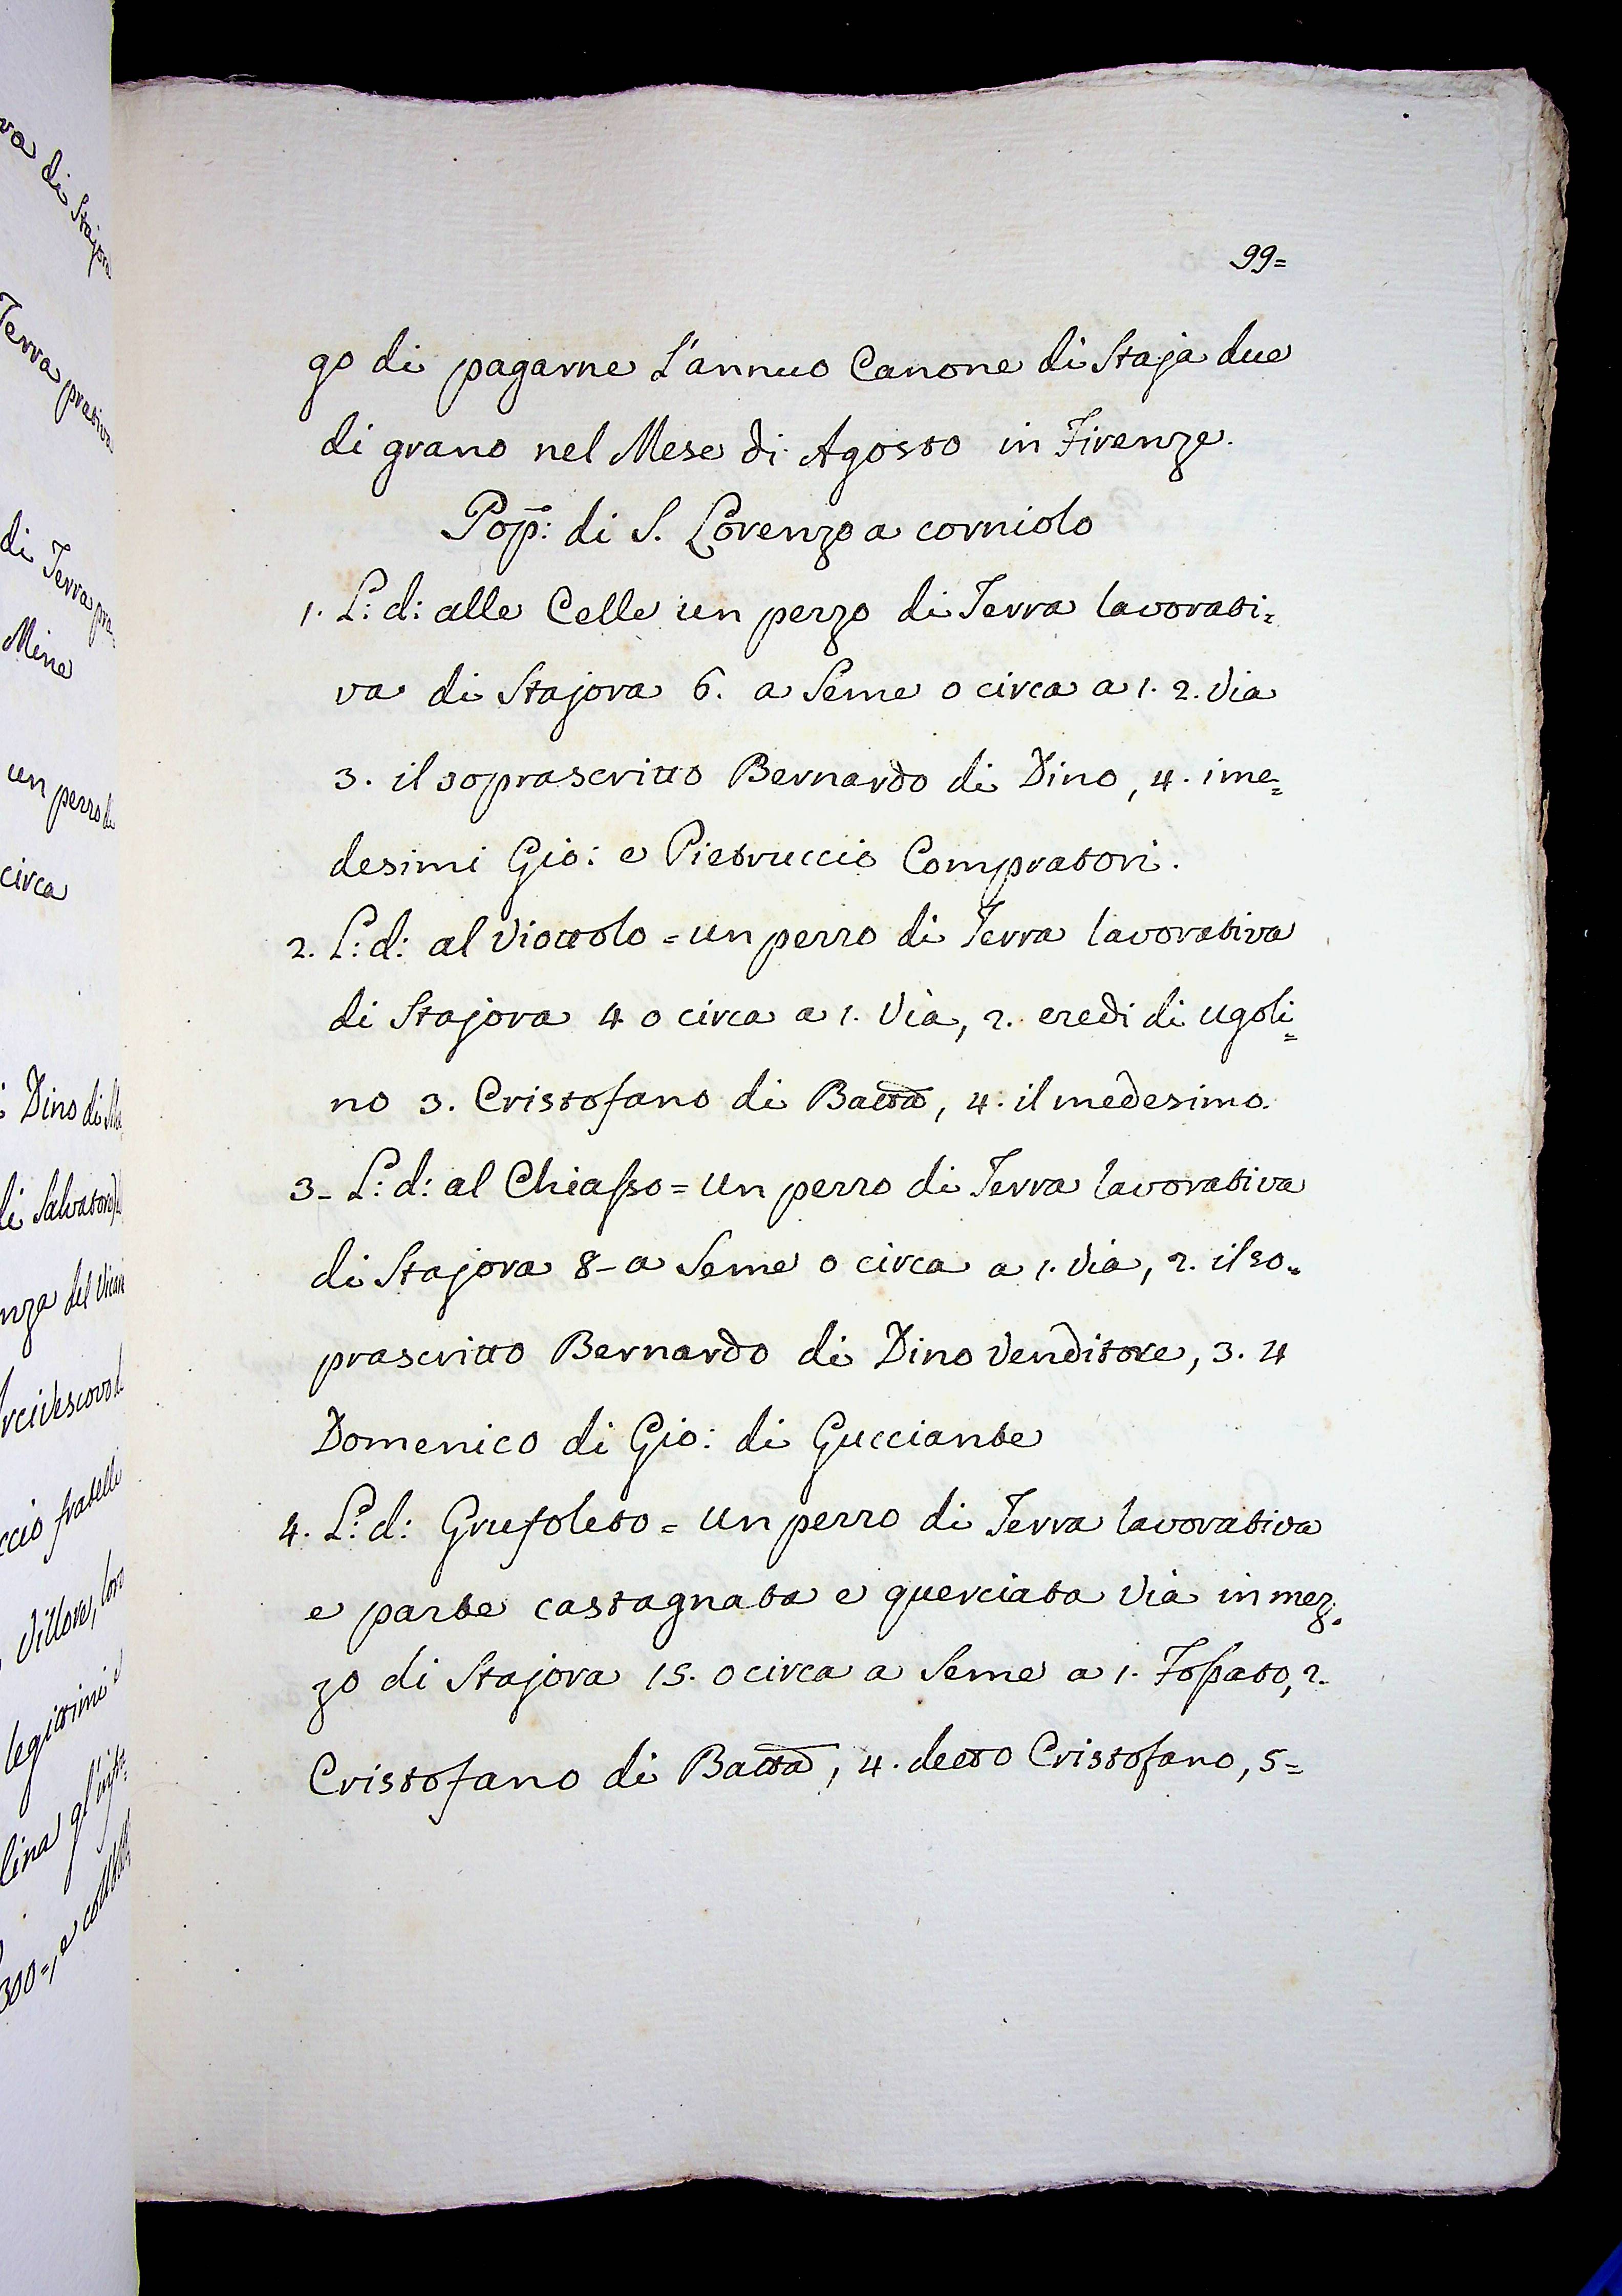 va di Stajora
Terra prativa
di Terra pra=
Mine
un pezzo di
circa
Dino di
di Salvatore
nza del
rcivescovo
ccio fratelli
Villore, loro
legittimi e
lina gl'
300=, e
99=
go di pagarne L'annuo Canone di Staja due
di grano nel Mese di Agosto in Firenze.
Pop: di S. Lorenzo a corniolo
1. L: d: alle Celle un pezzo di Terra lavorati=
va di Stajora 6. a Seme o circa a 1. 2. Via
3. il soprascritto Bernardo di Dino, 4. i me=
desimi Gio: e Pietruccio Compratori.
2. L: d: al Viottolo = un pezzo di Terra lavorativa
di Stajora 4 o circa a 1. Via, 2. eredi di ugoli=
no 3. Cristofano di Batta, 4. il medesimo.
3- L: d: al Chiasso = un pezzo di Terra lavorativa
di Stajora 8- a Seme o circa a 1. Via, 2. il so=
prascritto Bernardo di Dino Venditore, 3. 4
Domenico di Gio: di Gucciante
4. L: d: Grufoleto = un pezzo di Terra lavorativa
e parte castagnata e querciata Via in mez=
zo di Stajora 15. o circa a Seme a 1. Fossato, 2.
Cristofano di Batta, 4. detto Cristofano, 5=